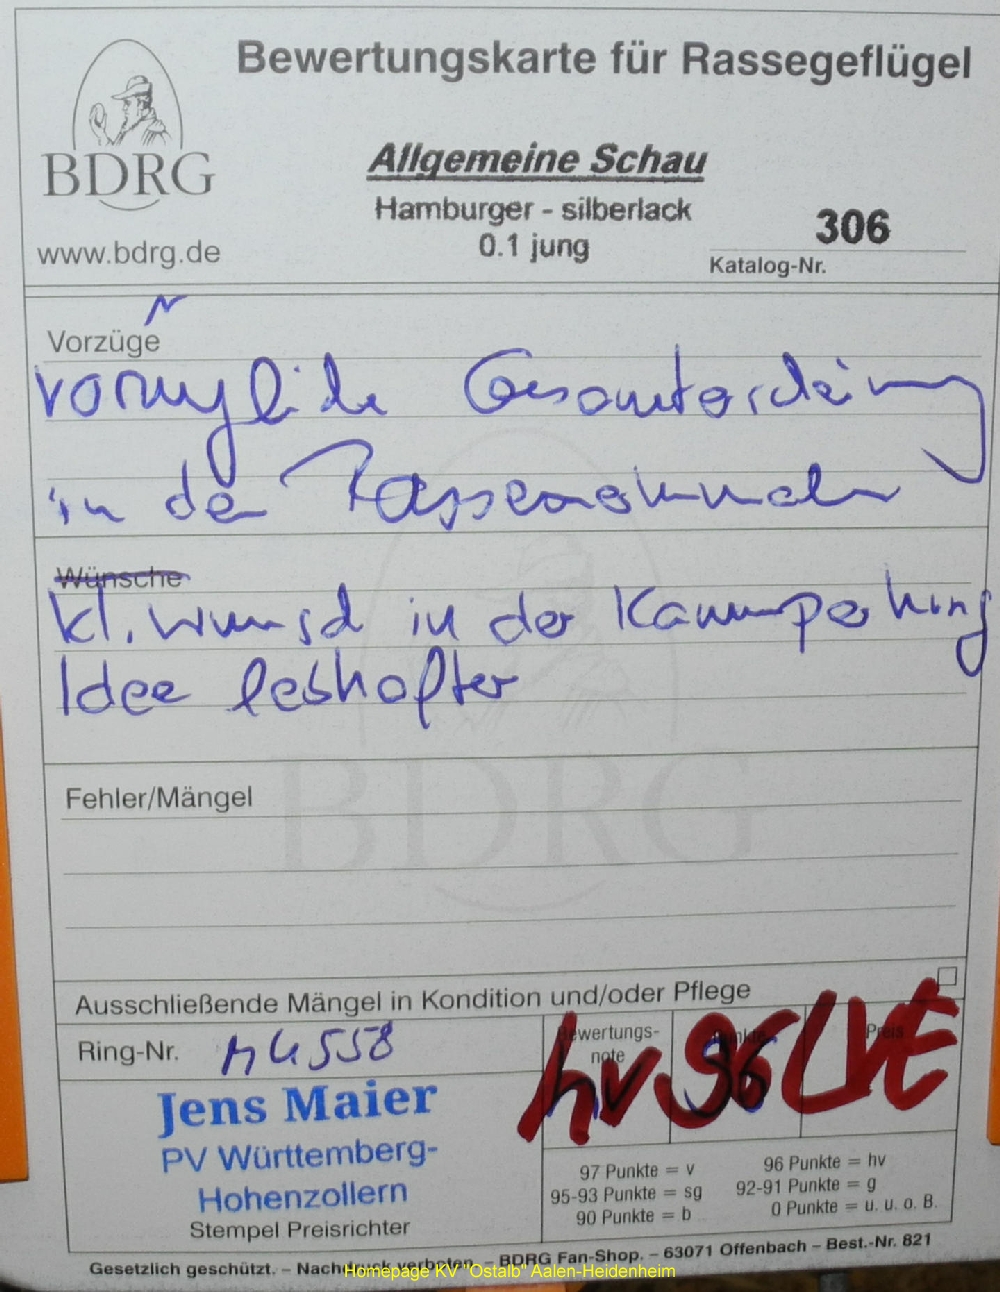 Bewertungskarte für Rassegeflügel
BDRG
www.bdrg.de
Allgemeine Schau
Hamburger - silberlack
0.1 jung
306
Katalog-Nr.
Vorzüge
vorzügliche Gesamterscheinung
in den Rassemerkmalen
Wünsche
kl. Wunsch in der Kammperlung
Idee lebhafter
BDRG
Fehler/Mängel
Ausschließende Mängel in Kondition und/oder Pflege
Ring-Nr.
558
Bewertungs-
note
Punkte
Preis
hv 96 LVE
Jens Maier
PV Württemberg-
Hohenzollern
Stempel Preisrichter
97 Punkte = v
96 Punkte = hv
95-93 Punkte = sg
92-91 Punkte = g
90 Punkte = b
0 Punkte = u. u. o. B.
Gesetzlich geschützt. – Nachdruck verboten – BDRG Fan-Shop. – 63071 Offenbach – Best.-Nr. 821
Homepage KV "Ostalb" Aalen-Heidenheim